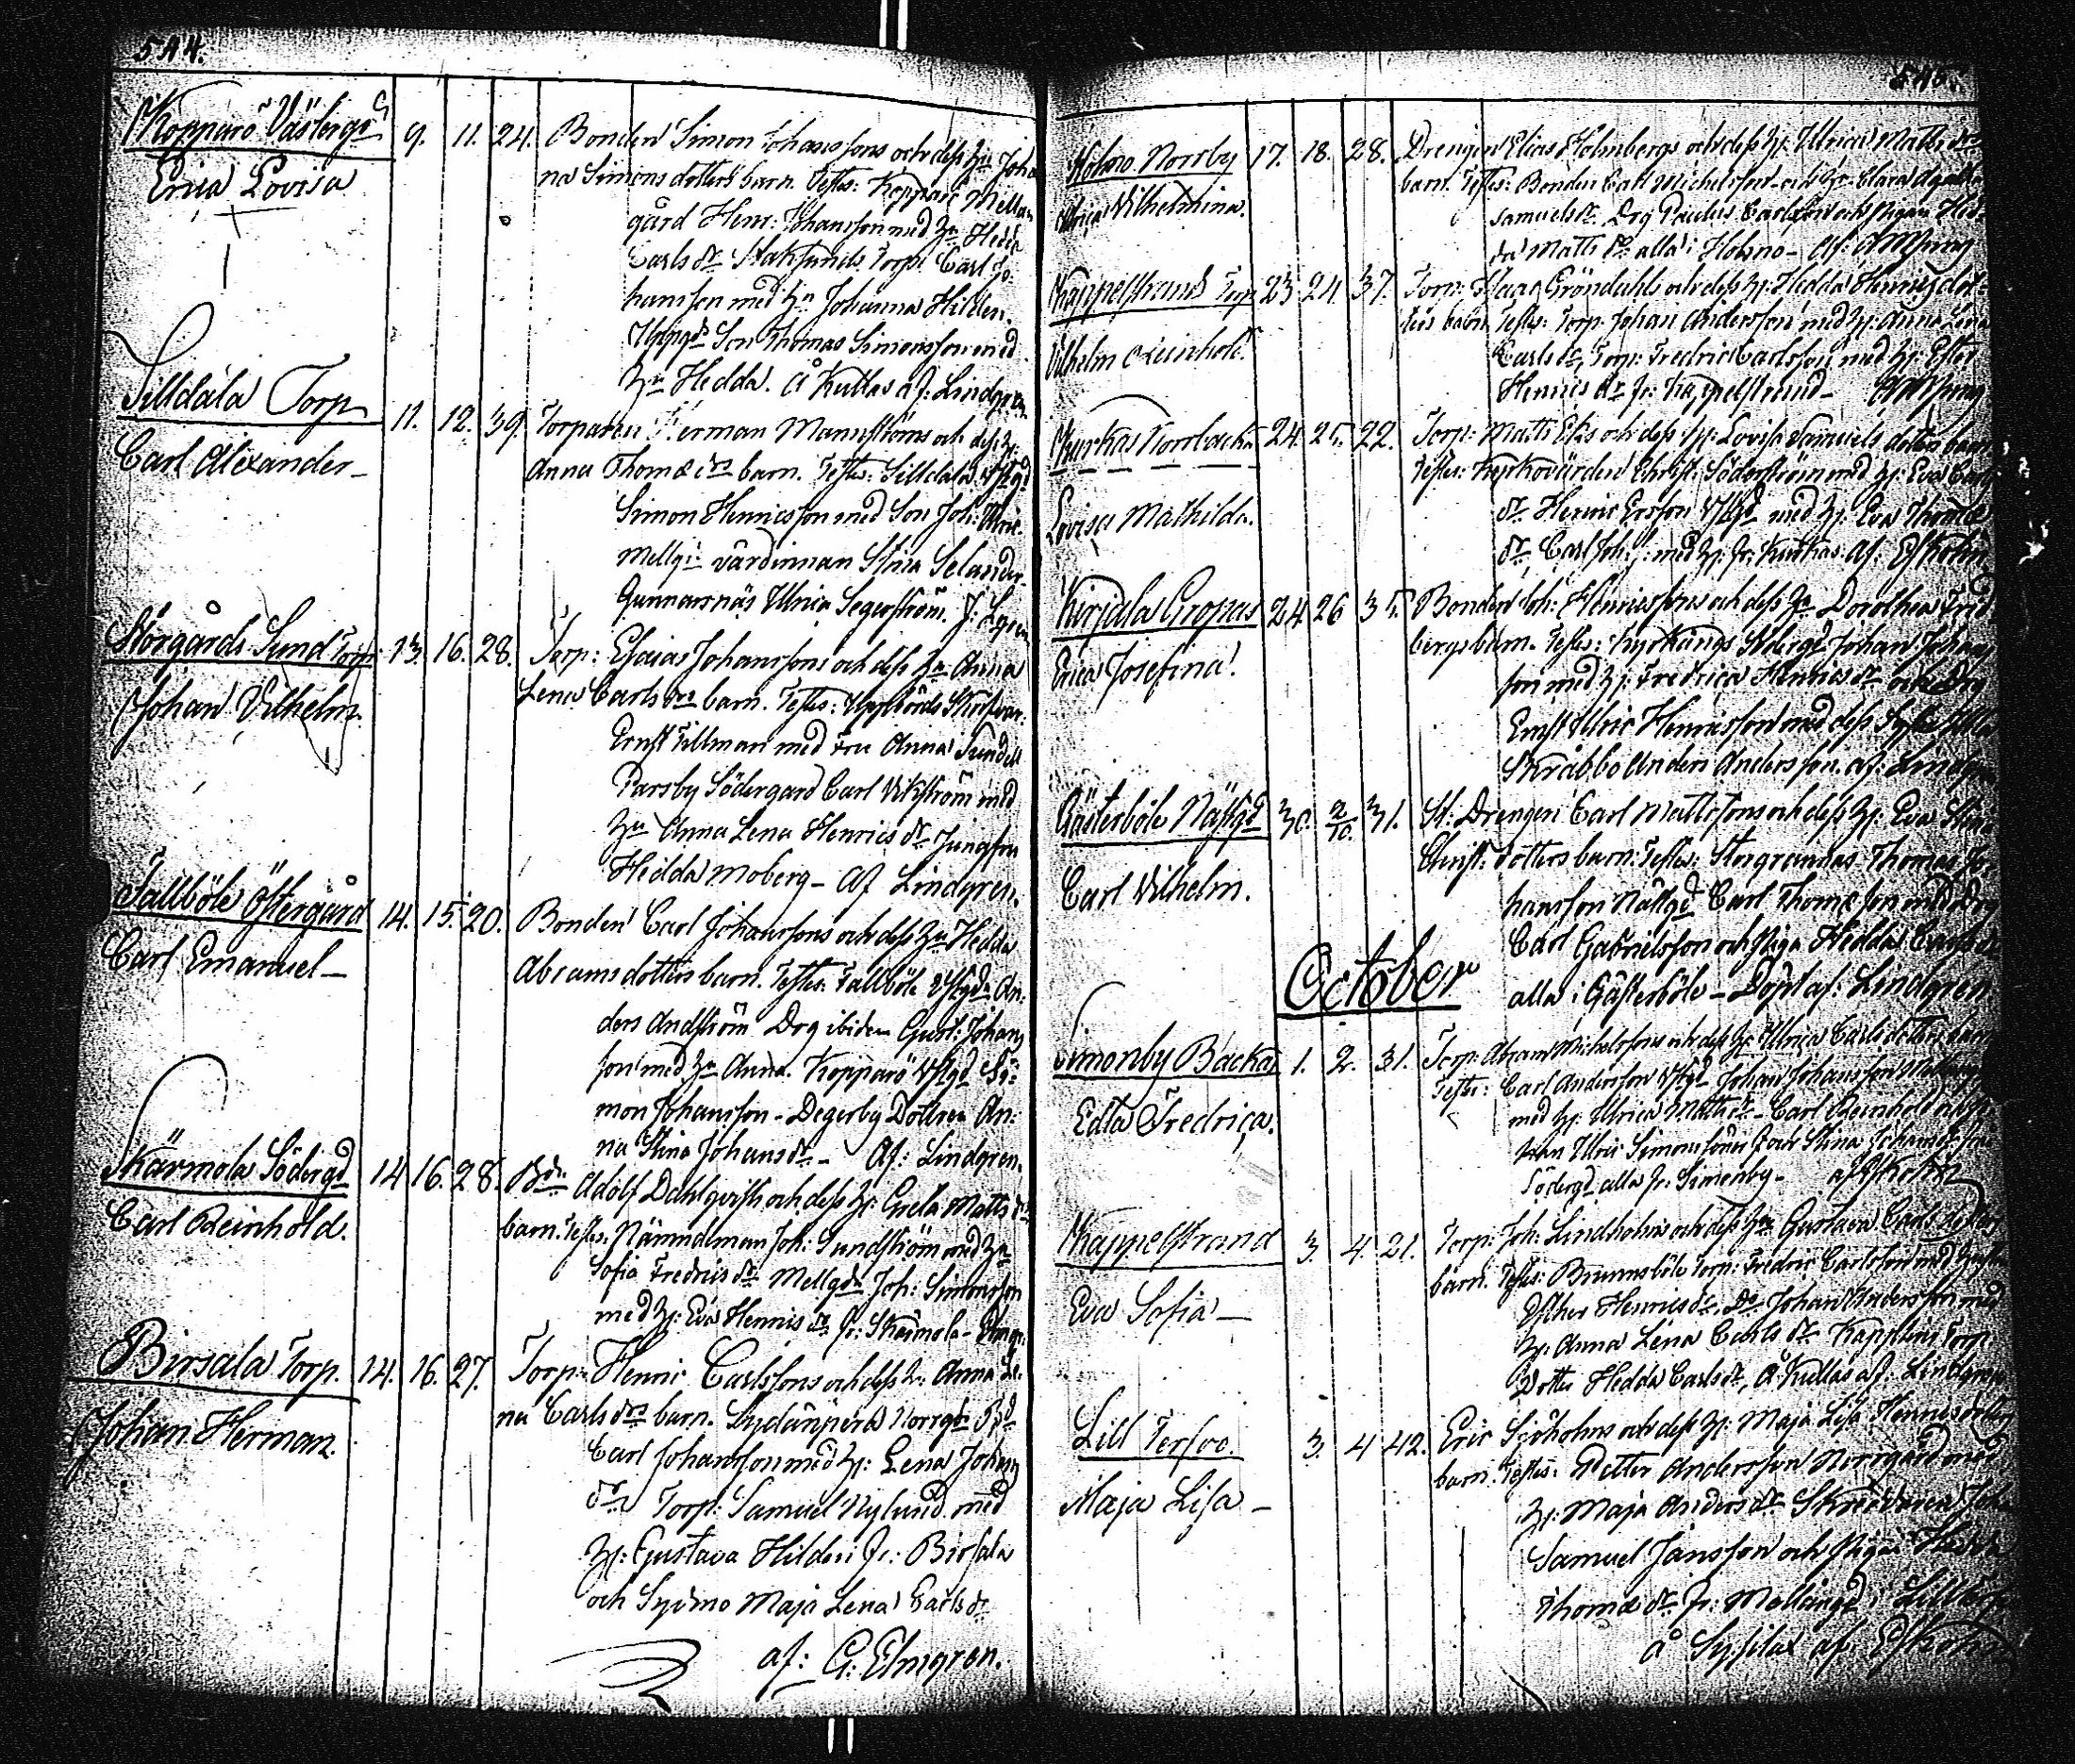 544.
Kopparö Västergd
Erica Lovisa
9. 11. 24. Bonden Simon Johanssons och dess hu Joha
na Simons dotters barn. Testes: Kopparö Mellan
gård Henr: Johansson med hu Hedda
Carls dr Staksunds Torp: Carl Jo-
hansson med hu Johanna Hilden.
Son Thomas Simonsson med
hu Hedda. å Kullas af: Lindgren
Silldala Torp
Carl Alexander
11. 12. 39. Torparen Herman Mannströms och dess h:
Anna Thomæ drs barn. Testes: Silldala
Simon Henricsson med Son Joh: Ulric
Mellgds värdinnan Stina Selander
Gunnarsnäs Ulrica Segerström.
Norgårds Sund Torp
Johan Vilhelm.
13. 16. 28. Torp: Esaias Johanssons och dess hu Anna
Lena Carls drs barn. Testes:
Ernst Tillman med Fru Anna Sundell
Parsby Södergård Carl Vikström med
hu Anna Lena Henrics dr Jungfru
Hedda Moberg – Af Lindgren.
Tallböle Östergård
Carl Emanuel –
14. 15. 20. Bonden Carl Johanssons och dess hu Hedda
Abrams dotters barn. Testes: Tallböle An-
ders Andström Drg ibidem Gust: Johans
son med hu Anna. Kopparö Si-
mon Johansson – Degerby Dottren An-
na Stina Johans dr – Af: Lindgren.
Skärmola Södergd
Carl Reinhold.
14 16. 28. Bdn Adolf Dahlqvists och dess h: Greta Matts drs
barn. Testes: Nämndeman Joh: Sundström med hu
Sofia Fredrics dr Mellgds Joh: Simonsson
med h: Eva Henrics dr fr: Skärmola – Elmgr:
Birsala Torp.
Johan Herman
14. 16. 27. Torp: Henric Carlssons och dess h: Anna Le-
na Carls drs barn. Lydänperä Norrgds Bd
Carl Johansson med h: Lena Johans
dr Torp: Samuel Nylund med
h: Gustava Hilden fr: Birsala
och Sydmo Maja Lena Carls dr
af: G: Elmgren.
545.
Holmo Norrby
Ulrica Vilhelmina.
17. 18. 28. Drengen Elias Holmbergs och dess h: Ulrica Matts drs
barn. Testes: Bonden Carl Michelsson och hu Clara Agatha
Samuels dr Drg Paulus Carlsson och Pigan Hed-
da Matts dr alla i Holmo – af:
Kappelstrand Torp
Vilhelm Reinhold.
23 24. 37. Torp: Isaac Gröndahls och dess h: Hedda Henrics dot-
ters barn Testes: Torp: Johan Andersson med h: Anna Lena
Carls dr, Torp: Fredric Carlsson med h: Ester
Henrics dr fr: Kappelstrand –
Kurkas Norrbacka
Lovisa Mathilda.
24. 25. 22. Torp: Matts Elis och dess h: Lovisa Samuels dotters barn
Testes: Kyrkovärden Christ: Söderström med h: Eva Carls
dr Henric Ersson med h: Eva Thomæ
dr, Carl Joh: s: med h: fr: Kurkas. af:
Kirjala Gropas
Erica Josefina.
24 26 35. Bonden Joh: Henricssons och dess hu Dorothea Frid
bergs barn. Testes: Kyrkängs Johan Johans
son med h: Fredrica Henrics dr och Drg
Ernst Ulric Henricsson med dess
Skräbbo Anders Andersson. af: Lindgr
Gästerböle Nästgd
Carl Vilhelm.
30. 2/10. 31. St: Drengen Carl Mattssons och dess h: Eva Stina
Christ: dotters barn: Testes: Storgrannas Thomas Jo-
hansson Nästgd Carl Thomæson med Drg
Carl Gabrielsson och Piga Hedda Carls dr
alla i Gästerböle – Döpt af: Lindgren
October
Simonby Backas
Edla Fredrica.
1. 2. 31. Torp: Abram Michelssons och dess h: Ulrica Carls dotters barn
Testes: Carl Andersson Johan Johansson
med h: Ulrica Matts dr – Carl Reinhold
Ulric Simonsson och Stina Johans dr
Södergd alla fr: Simonby –
Kappelstrand
Eva Sofia –
3. 4. 21. Torp: Joh: Lindholms och dess hu Gustava Carls dotters
barn. Testes: Brunnsböle Torp: Fredric Carlsson med hustru
Esther Henrics dr, Do Johan Andersson med
h: Anna Lena Carls dr Torp:
Dotter Hedda Carls dr, å Kullas af: Lindgren
Lill Tervo.
Maja Lisa –
3. 4 42. Eric Sjöholms och dess h: Maja Lisa Henrics dotters
barn. Testes: Petter Andersson Norrgård med
h: Maja Anders dr Skräddaren Joh
Samuel Jansson och Pigan Hedda
Thomæ dr fr: Mellangd i
å Sysilax af: